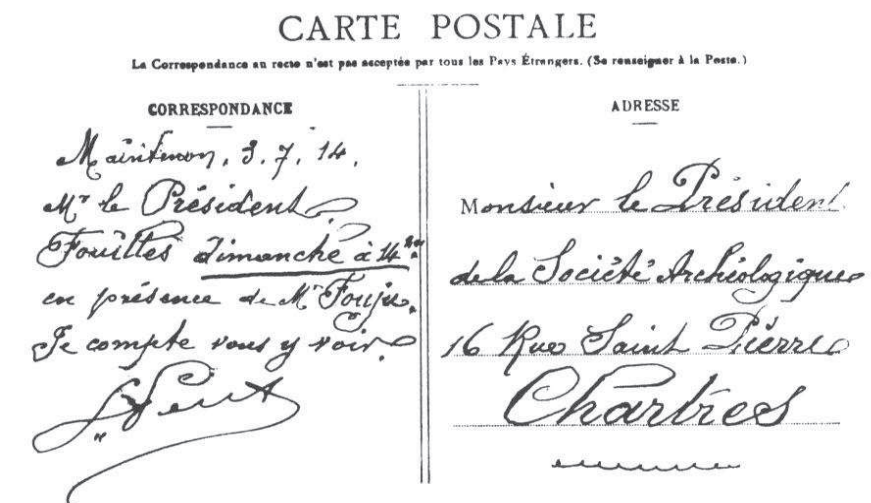 CARTE POSTALE
La Correspondance au recto n'est pas acceptée par tous les Pays Étrangers. (Se renseigner à la Poste.)
CORRESPONDANCE
Maintenon, 3.7.14.
Mr le Président
Fouilles dimanche à 14 h
en présence de Mr Fouju.
Je compte vous y voir.
ADRESSE
Monsieur le Président
de la Société Archéologique
16 Rue Saint Pierre
Chartres